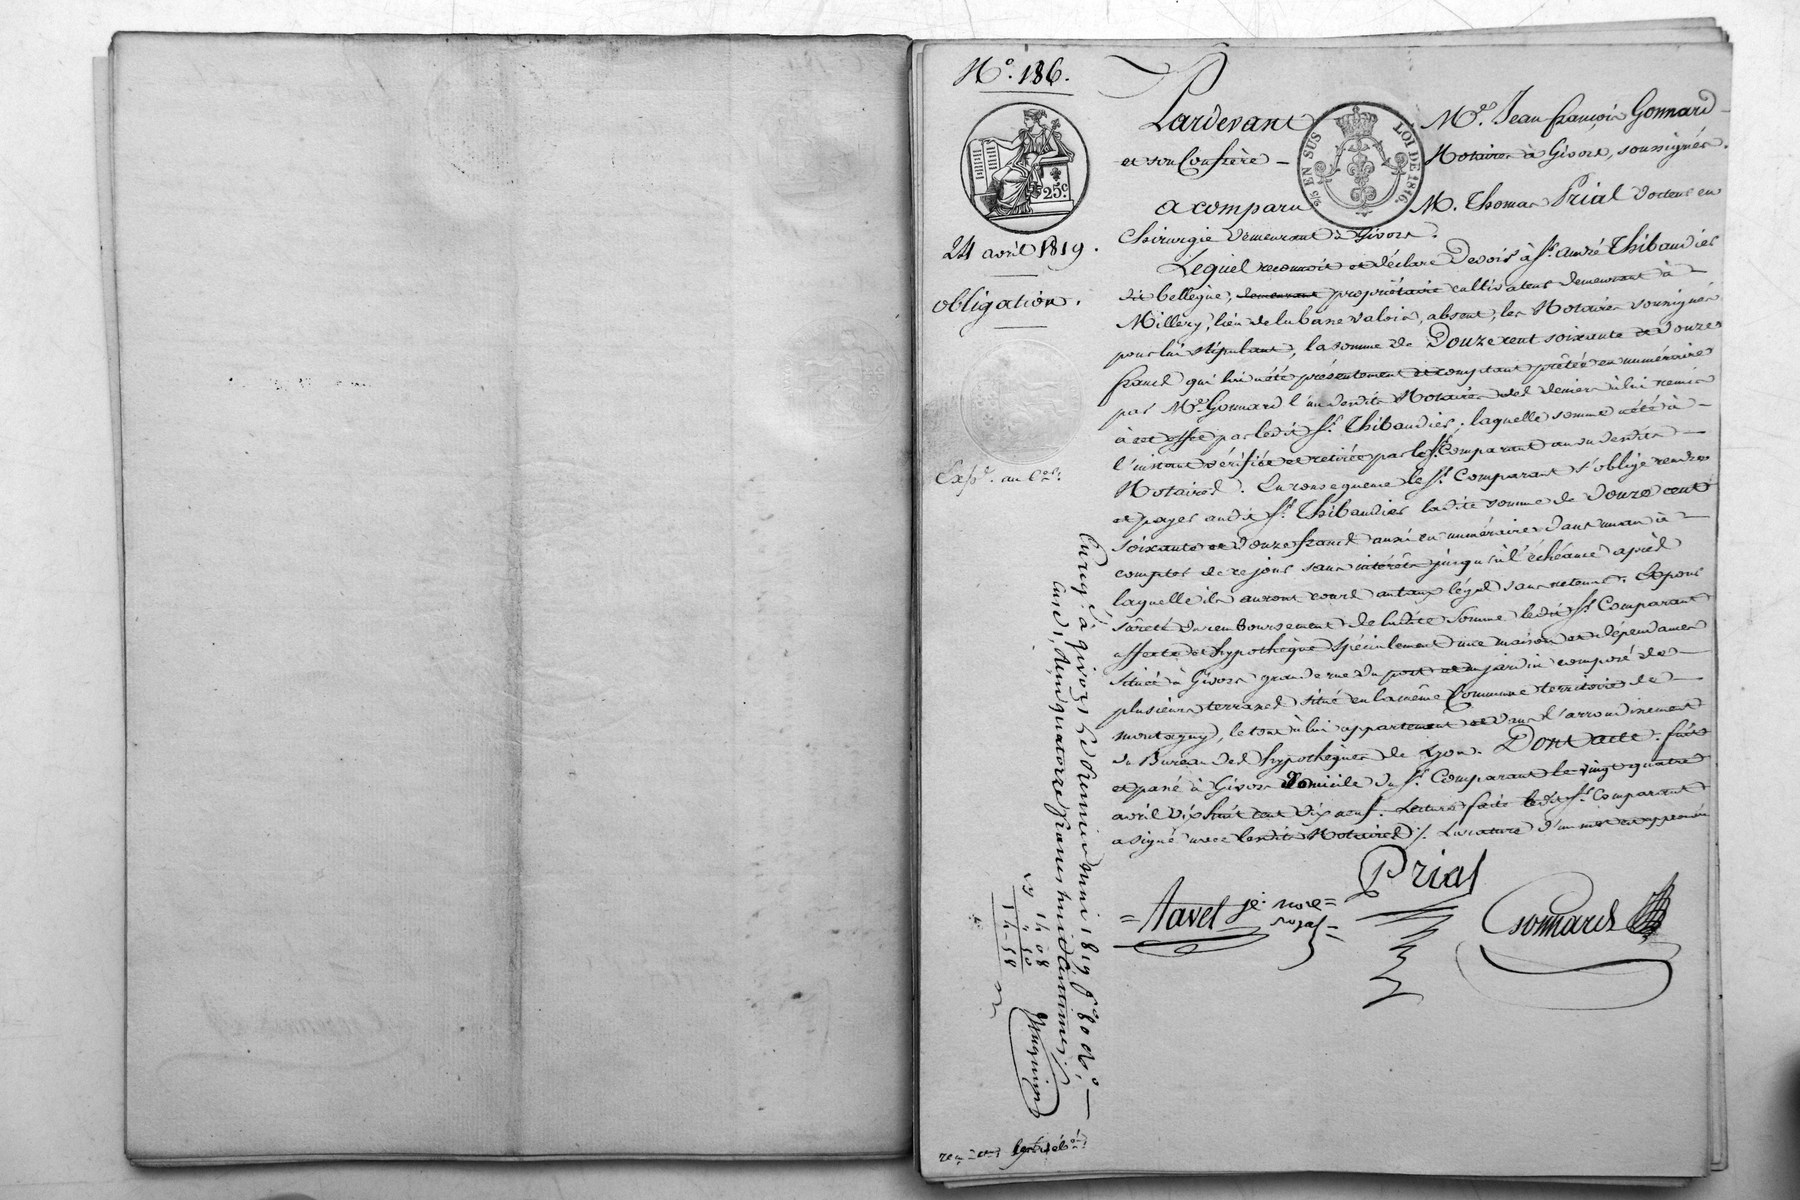 N.° 186.
25.c
24 avril 1819.
obligation.
Exp.on au C.er
Pardevant M.e Jean françois Gonnard
et son Confrère Notaires à Givors, soussignés.
5/5 EN SUS LOI DE 1816.
a comparu M. Thomas Prial docteur en
Chirurgie demeurant à Givors.
Lequel reconnoit et déclare devoir à S.r andré Thibaudier
dit bellegue, demeurant propriétaire cultivateur demeurant à
Millery, lieu de la basse valois, absent, les Notaires soussignés
pour lui stipulant, la somme de Douze cent soixante et douze
francs qui lui a été présentement et comptant prêtée en numéraire
par M.e Gonnard l'un desdits Notaires des deniers à lui remis
à cet effet par ledit S.r Thibaudier; laquelle somme a été à
l'instant vérifiée et retirée par le S.r Comparant au vu desdits
Notaires. En conséquence le S.r Comparant s'oblige rendre
et payer audit S.r Thibaudier ladite somme de douze cents
soixante et douze francs aussi en numéraire dans un an à
compter de ce jour sans intérêts jusqu'à l'échéance après
laquelle ils auront cours au taux légal sans retenue. Et pour
sûreté du remboursement de ladite somme ledit S.r Comparant
affecte et hypothèque spécialement une maison et dépendances
située à Givors grande rue du port et un jardin composé de
plusieurs terrasses situé en la même Commune territoire de
montagny, le tout à lui appartenant et dans l'arrondissement
du Bureau des hypothèques de Lyon. Dont acte. fait
et passé à Givors domicile du S.r Comparant le vingt quatre
avril dix huit cent dix neuf. Lecture faite ledit S.r Comparant
a signé avec lesdits Notaires ./. La rature d'un mot est approuvée
Prial
Tavel je. no.re royal
Gonnard
Enreg.é à Givors le premier mai 1819 f.o 80 v.o
quatorze francs huit centimes
14 08
14-58